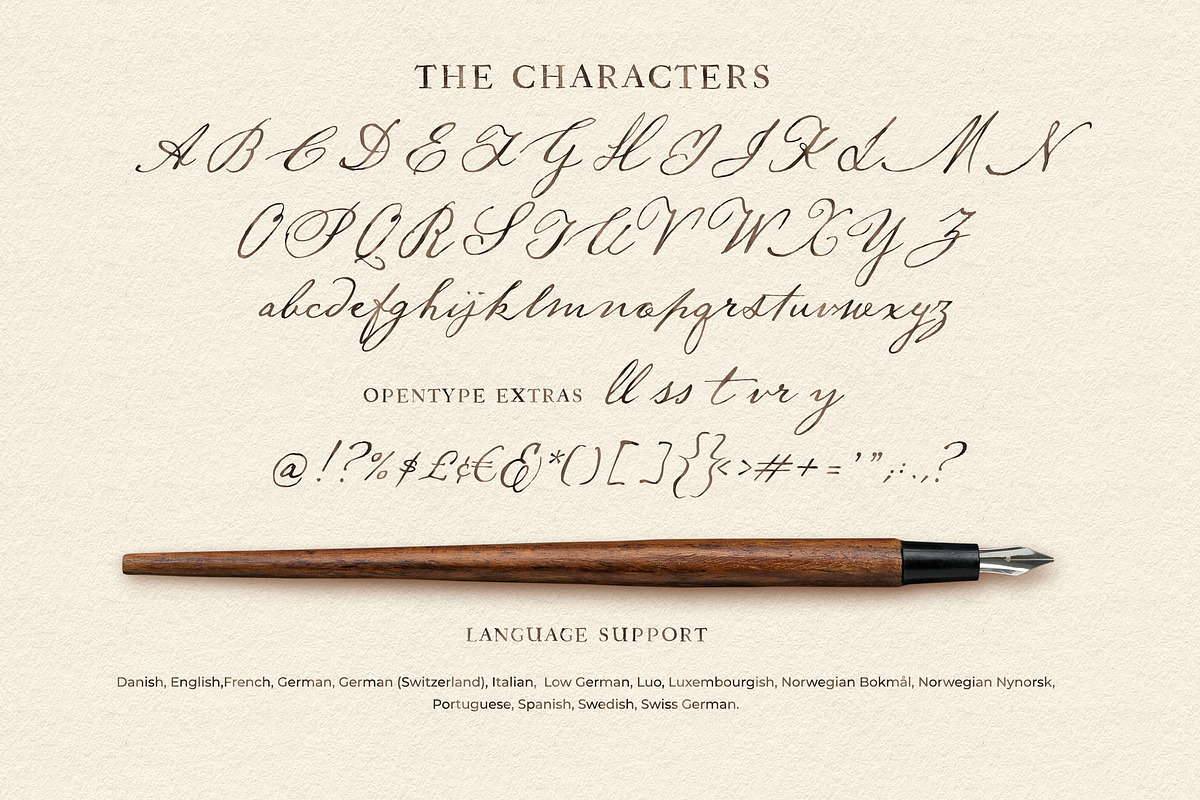 THE CHARACTERS
A B C D E F G H I J K L M N
O P Q R S T U V W X Y Z
abcdefghijklmnopqrstuvwxyz
OPENTYPE EXTRAS ll ss t vr y
@!?%$£¢€&*()[]{}<>#+='”;:.,?
LANGUAGE SUPPORT
Danish, English,French, German, German (Switzerland), Italian,  Low German, Luo, Luxembourgish, Norwegian Bokmål, Norwegian Nynorsk,
Portuguese, Spanish, Swedish, Swiss German.